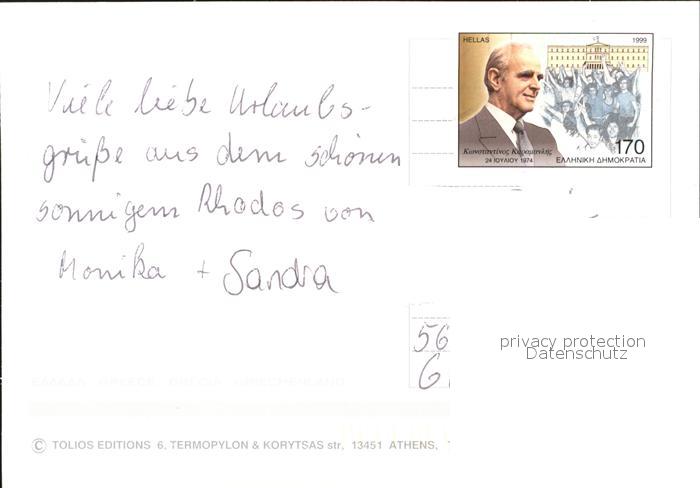 Viele liebe Urlaubs-
grüße aus dem schönen
sonnigem Rhodos von
Monika + Sandra
HELLAS 1999
Κωνσταντίνος Καραμανλής
24 ΙΟΥΛΙΟΥ 1974
170
ΕΛΛΗΝΙΚΗ ΔΗΜΟΚΡΑΤΙΑ
56
6
privacy protection
Datenschutz
ΕΛΛΑΔΑ GREECE GRECIA GRIECHENLAND
© TOLIOS EDITIONS 6, TERMOPYLON & KORYTSAS str, 13451 ATHENS,